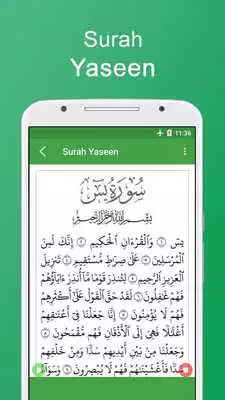 Surah
Yaseen
11:36
Surah Yaseen
سُورَةُ يسٓ
بِسْمِ اللَّهِ الرَّحْمَٰنِ الرَّحِيمِ
يسٓ ۝ وَالْقُرْءَانِ الْحَكِيمِ ۝ إِنَّكَ لَمِنَ
الْمُرْسَلِينَ ۝ عَلَىٰ صِرَاطٍ مُّسْتَقِيمٍ ۝ تَنزِيلَ
الْعَزِيزِ الرَّحِيمِ ۝ لِتُنذِرَ قَوْمًا مَّا أُنذِرَ ءَابَاؤُهُمْ
فَهُمْ غَٰفِلُونَ ۝ لَقَدْ حَقَّ الْقَوْلُ عَلَىٰ أَكْثَرِهِمْ
فَهُمْ لَا يُؤْمِنُونَ ۝ إِنَّا جَعَلْنَا فِي أَعْنَٰقِهِمْ
أَغْلَٰلًا فَهِيَ إِلَى الْأَذْقَانِ فَهُم مُّقْمَحُونَ ۝
وَجَعَلْنَا مِن بَيْنِ أَيْدِيهِمْ سَدًّا وَمِنْ خَلْفِهِمْ
سَدًّا فَأَغْشَيْنَٰهُمْ فَهُمْ لَا يُبْصِرُونَ ۝ وَسَوَآءٌ